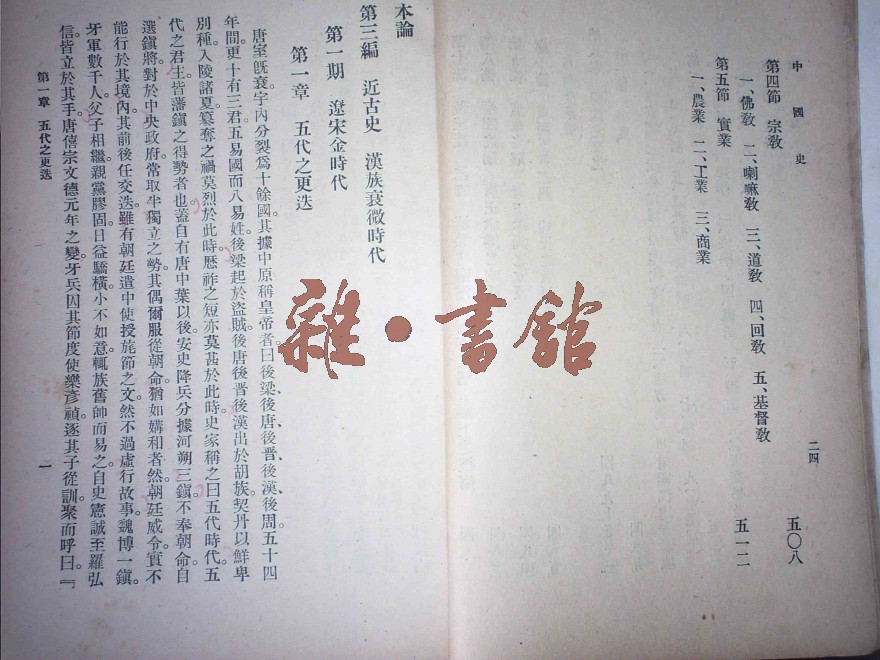 中國史
二四
第四節　宗教　五〇八
一、佛教　二、喇嘛教　三、道教　四、回教　五、基督教
第五節　實業　五一二
一、農業　二、工業　三、商業
本論
第三編　近古史　漢族衰微時代
第一期　遼宋金時代
第一章　五代之更迭
唐室旣衰。宇內分裂爲十餘國。其據中原稱皇帝者。曰後梁、後唐、後晉、後漢、後周。五十四
年間。更十有三君。五易國而八易姓。後梁起於盜賊。後唐後晉後漢出於胡族。契丹以鮮卑
別種。入陵諸夏。簒奪之禍。莫烈於此時。歷祚之短。亦莫甚於此時。史家稱之曰五代時代。五
代之君主。皆藩鎭之得勢者也。蓋自有唐中葉以後。安史降兵。分據河朔三鎭。不奉朝命。自
選鎭將。對於中央政府。常取半獨立之勢。其偶爾服從朝命。猶如媾和者然。朝廷威令。實不
能行於其境內。其前後任交迭。雖有朝廷遣中使授旄節之文。然不過虛行故事。魏博一鎭。
牙軍數千人。父子相繼。親黨膠固。日益驕橫。小不如意。輒族舊帥而易之。自史憲誠至羅弘
信。皆立於其手。唐僖宗文德元年之變。牙兵囚其節度使樂彥禎。逐其子從訓。聚而呼曰。『
第一章　五代之更迭
一
雜·書館